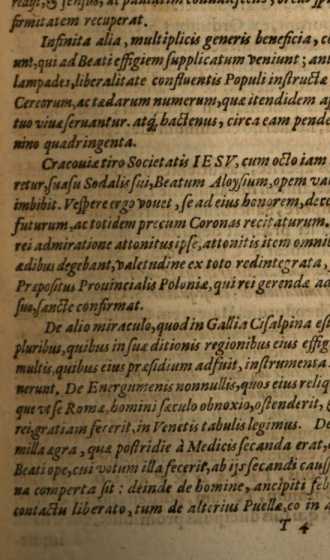 firmitatem recuperat.
Infinita alia, multiplicis generis beneficia, c
unt, qui ad Beati effigiem supplicatum veniunt; ant
lampades, liberalitate confluentis Populi instructæ
Cereorum, ac tædarum numerum, quæ itendidem ap
tuo viuæ seruantur. atq; hactenus, circa eam pende
nino quadringenta.
Cracouiæ tiro Societatis IESV, cum octo iam
retur, suasu Sodalis sui, Beatum Aloysium, opem val
imbibit. Vespere ergo vouet, se ad eius honorem, dece
futurum, ac totidem precum Coronas recitaturum.
rei admiratione attonitus ipse, attonitis item omnib
ædibus degebant, valetudine ex toto redintegrata,
Præpositus Prouincialis Poloniæ, qui rei gerendæ ad
suo, sancte confirmat.
De alio miraculo, quod in Gallia Cisalpina est
pluribus, quibus in suæ ditionis regionibus eius effig
multis, quibus eius præsidium adfuit, instrumenta
nerunt. De Energumenis nonnullis, quos eius reliq
que vt se Romæ homini sæculo obnoxio, ostenderit,
rei gratiam fecerit, in Venetis tabulis legimus. De
milla ægra, quæ postridie à Medicis secanda erat,
Beati ope, cui votum illa fecerit, ab ijs secandi causs
na comperta sit: deinde de homine, ancipiti feb
contactu liberato, tum de alterius Puellæ, eo in a
T 4